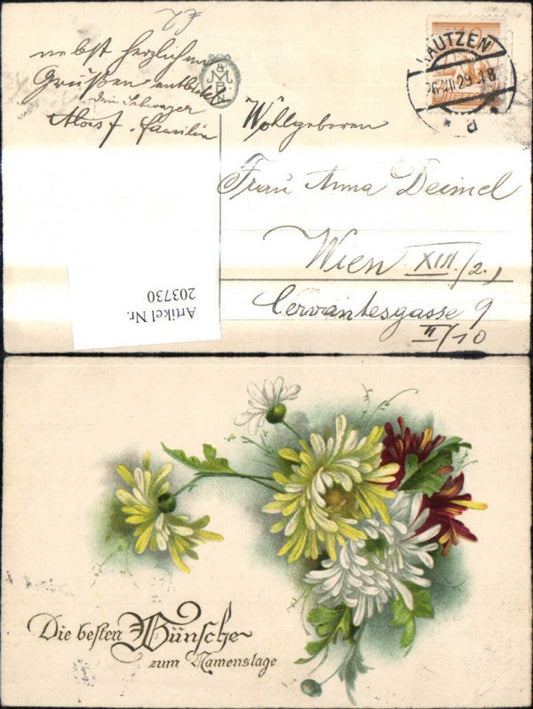 nebst herzlichen
Grüßen entbietet
Dein Schwager
Alois f. Familie
M
B
N
KAUTZEN
29
18
a
Wohlgeboren
Frau Anna Deimel
Wien XIII./2.,
Cervantesgasse 9
II/10
Artikel Nr.
203730
Die besten Wünsche
zum Namenstage